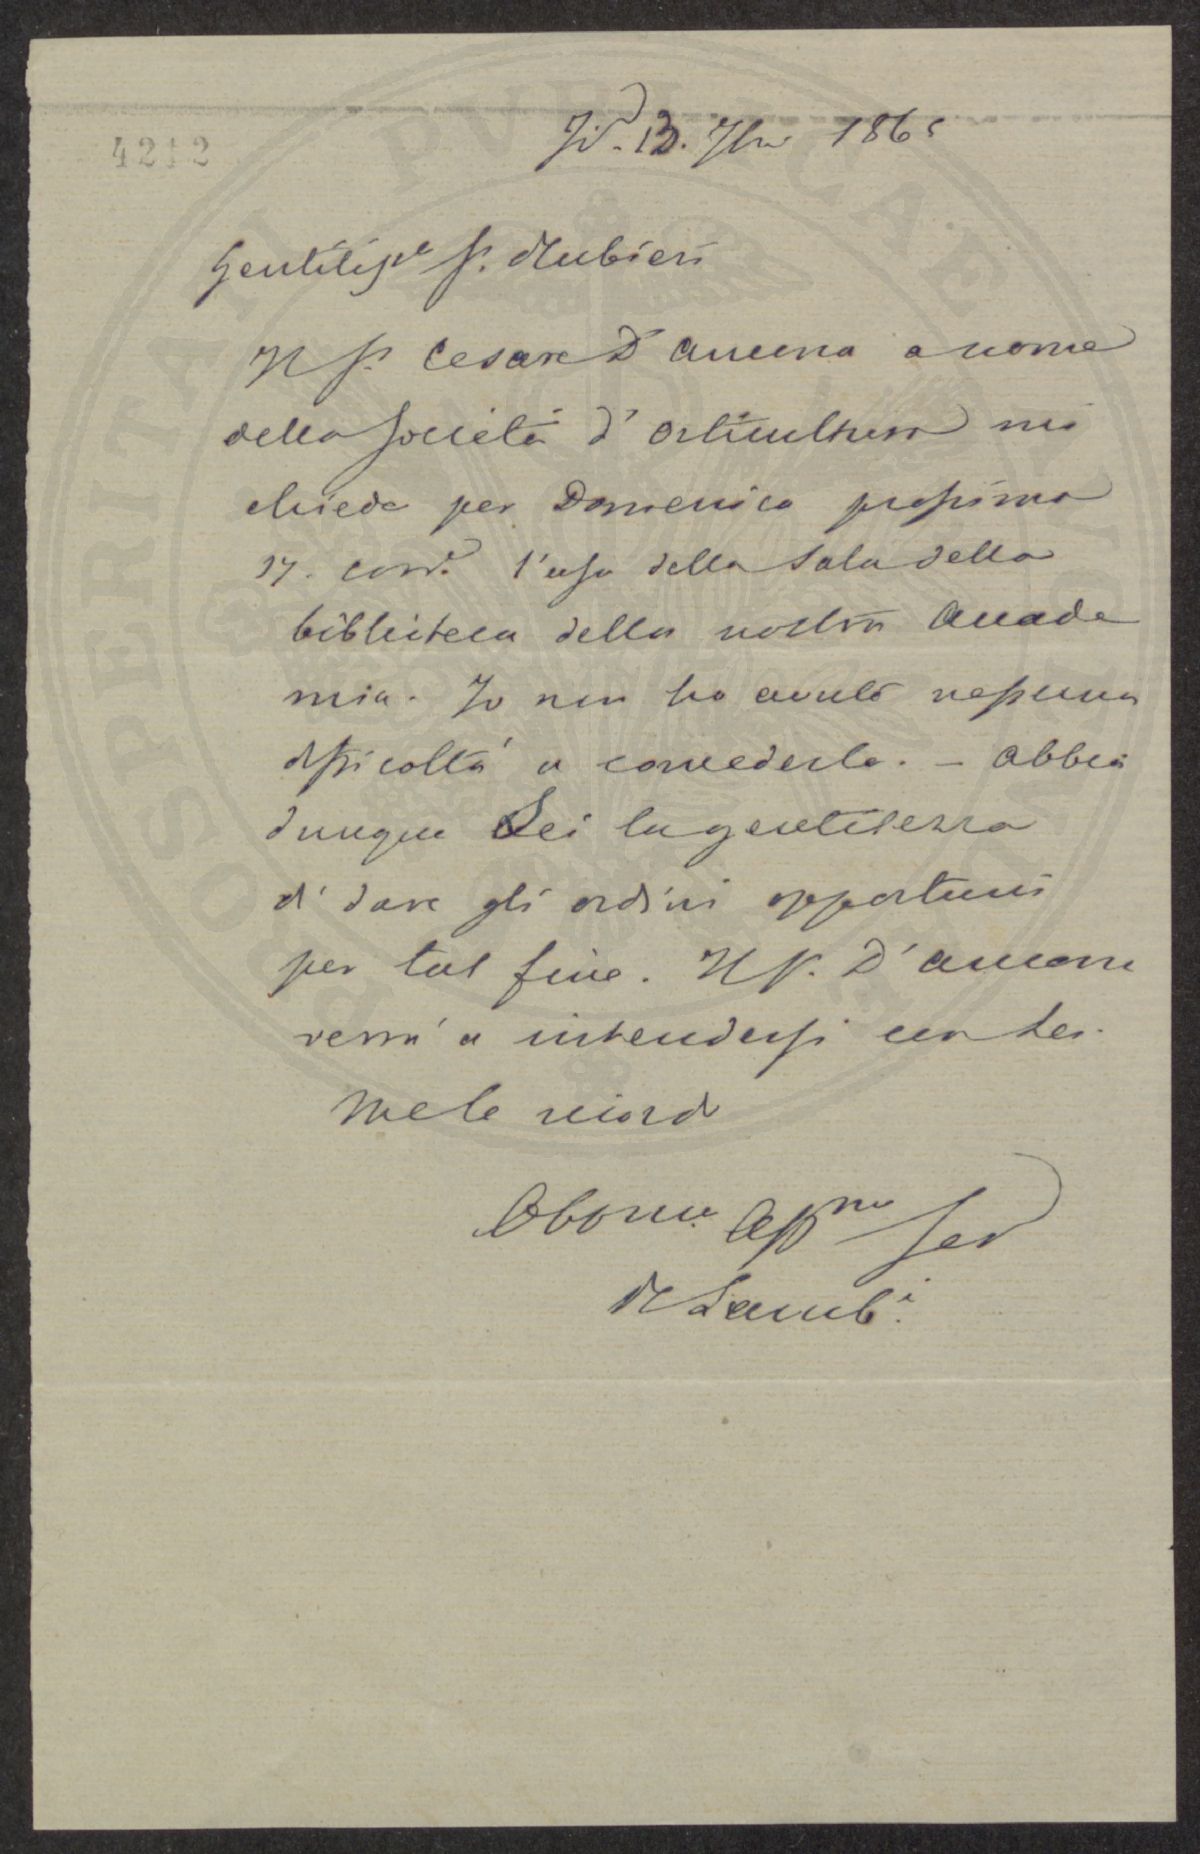 4212
13. 7bre 1865
Gentiliss. S. Rubieri
Il S. Cesare D'Ancona a nome
della Società d'Orticultura mi
chiede per Domenica prossima
17. corr.e l'uso della Sala della
biblioteca della nostra Accade
mia. Io non ho avuto nessuna
difficoltà a concederla. – Abbia
dunque Lei la gentilezza
di dare gli ordini opportuni
per tal fine. Il S. D'Ancona
verrà a intendersi con Lei.
Me le ricordo
Obbmo Affmo Ser
PROSPERITATI PVBLICAE AVGENDAE